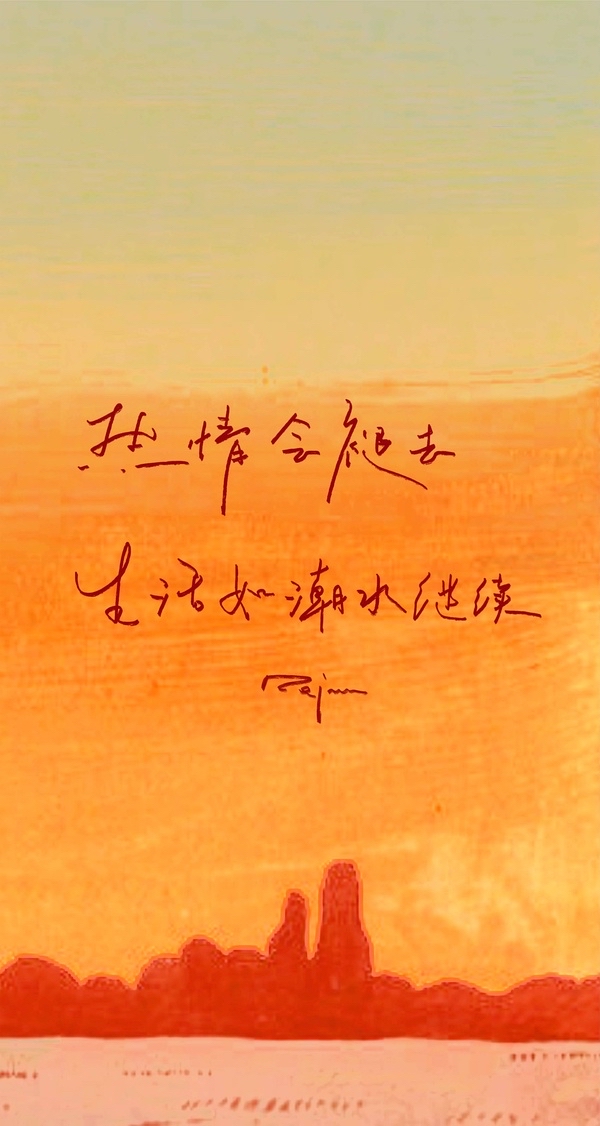 热情会褪去
生活如潮水继续